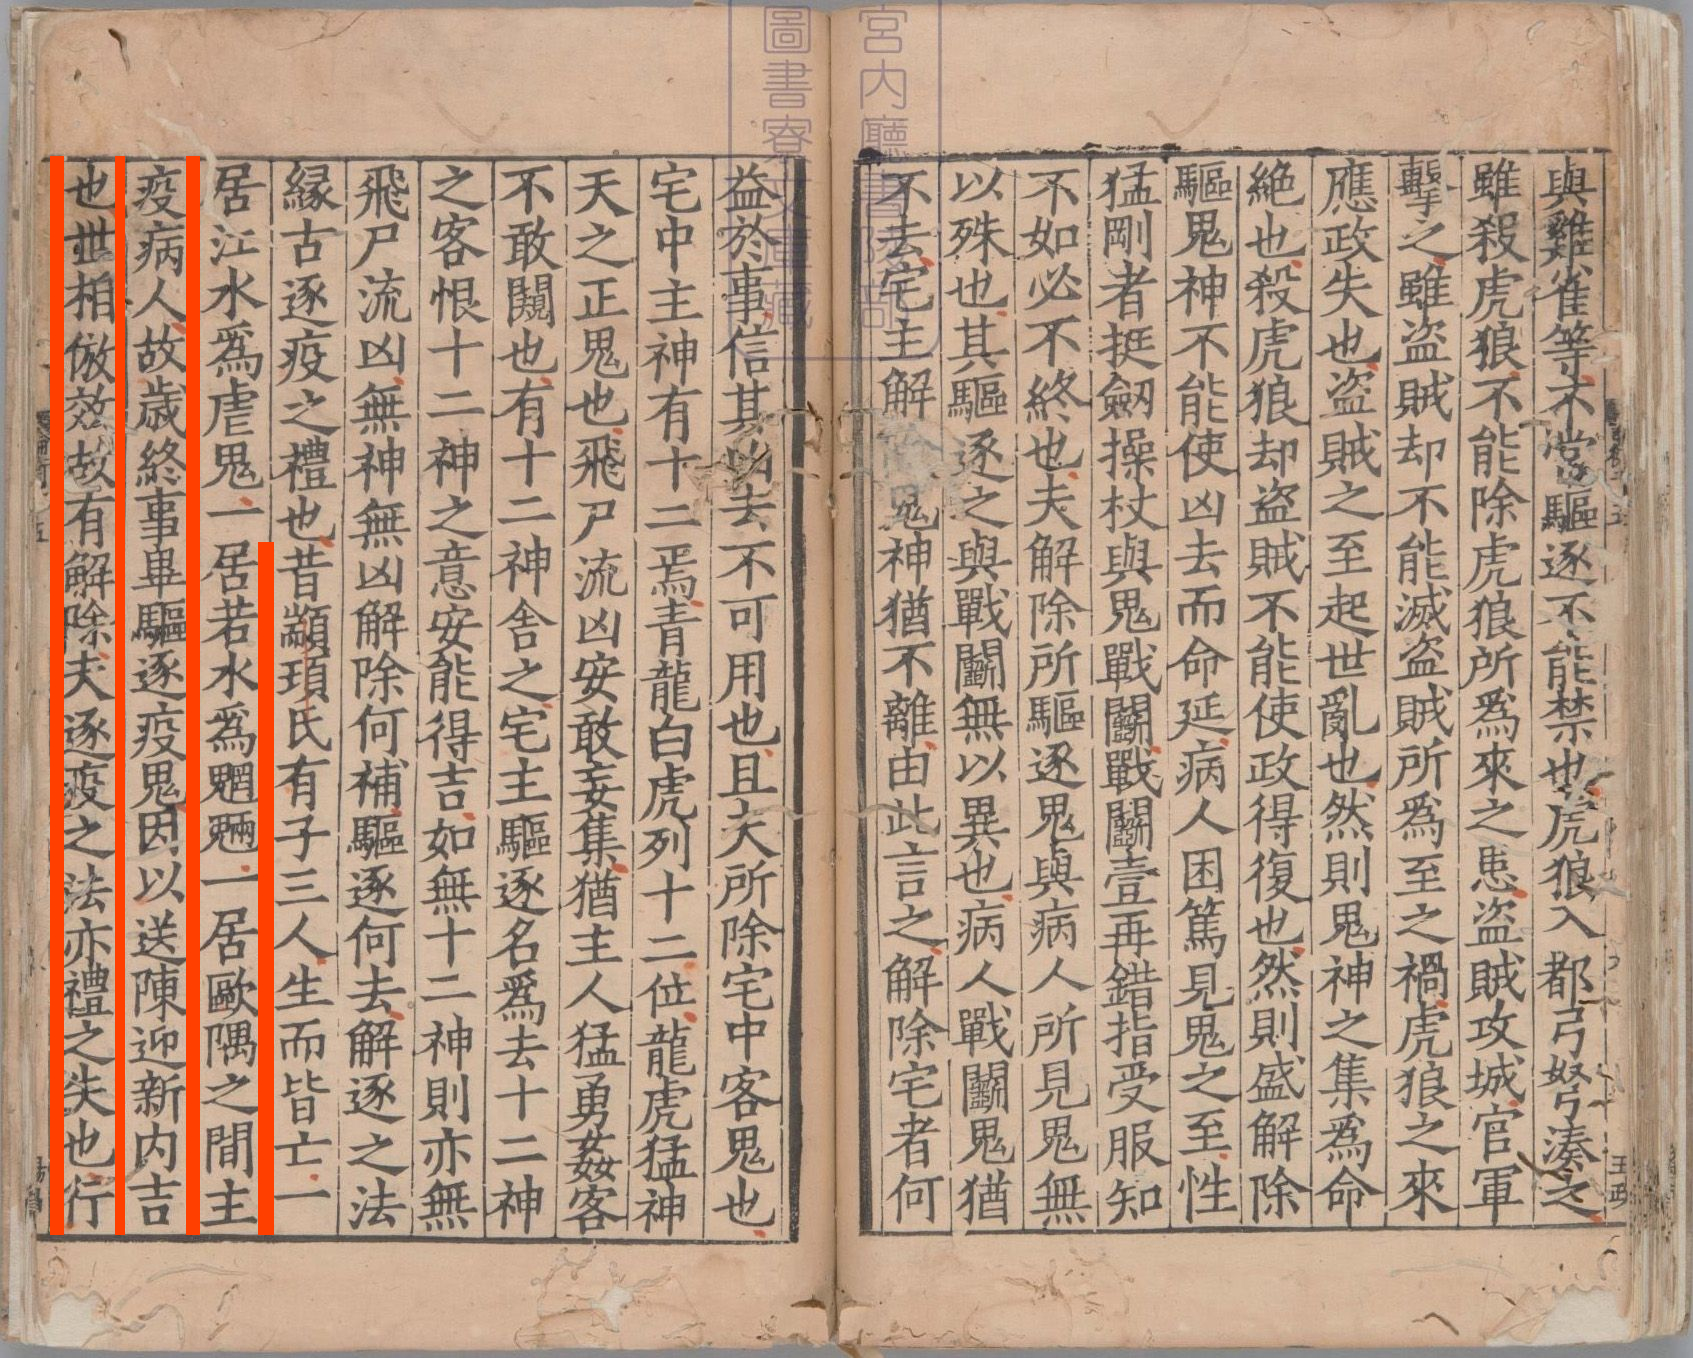 與雞雀等不常驅逐不能禁也虎狼入都弓弩湊之
雖殺虎狼不能除虎狼所爲來之患盗賊攻城官軍
擊之雖盗賊却不能滅盗賊所爲至之禍虎狼之來
應政失也盗賊之至起世亂也然則鬼神之集爲命
絶也殺虎狼却盗賊不能使政得復也然則盛解除
驅鬼神不能使凶去而命延病人困篤見鬼之至性
猛剛者挺劒操杖與鬼戰鬭戰鬭壹再錯指受服知
不如必不終也夫解除所驅逐鬼與病人所見鬼無
以殊也其驅逐之與戰鬭無以異也病人戰鬭鬼猶
不去宅主解除鬼神猶不離由此言之解除宅者何
益於事信其凶去不可用也且夫所除宅中客鬼也
宅中主神有十二焉青龍白虎列十二位龍虎猛神
天之正鬼也飛尸流凶安敢妄集猶主人猛勇姦客
不敢闚也有十二神舍之宅主驅逐名爲去十二神
之客恨十二神之意安能得吉如無十二神則亦無
飛尸流凶無神無凶解除何補驅逐何去解逐之法
縁古逐疫之禮也昔顓頊氏有子三人生而皆亡一
居江水爲虐鬼一居若水爲魍魎一居歐隅之間主
疫病人故歲終事畢驅逐疫鬼因以送陳迎新内吉
也世相倣效故有解除夫逐疫之法亦禮之失也行
宮内廳書陵部
圖書寮文庫藏